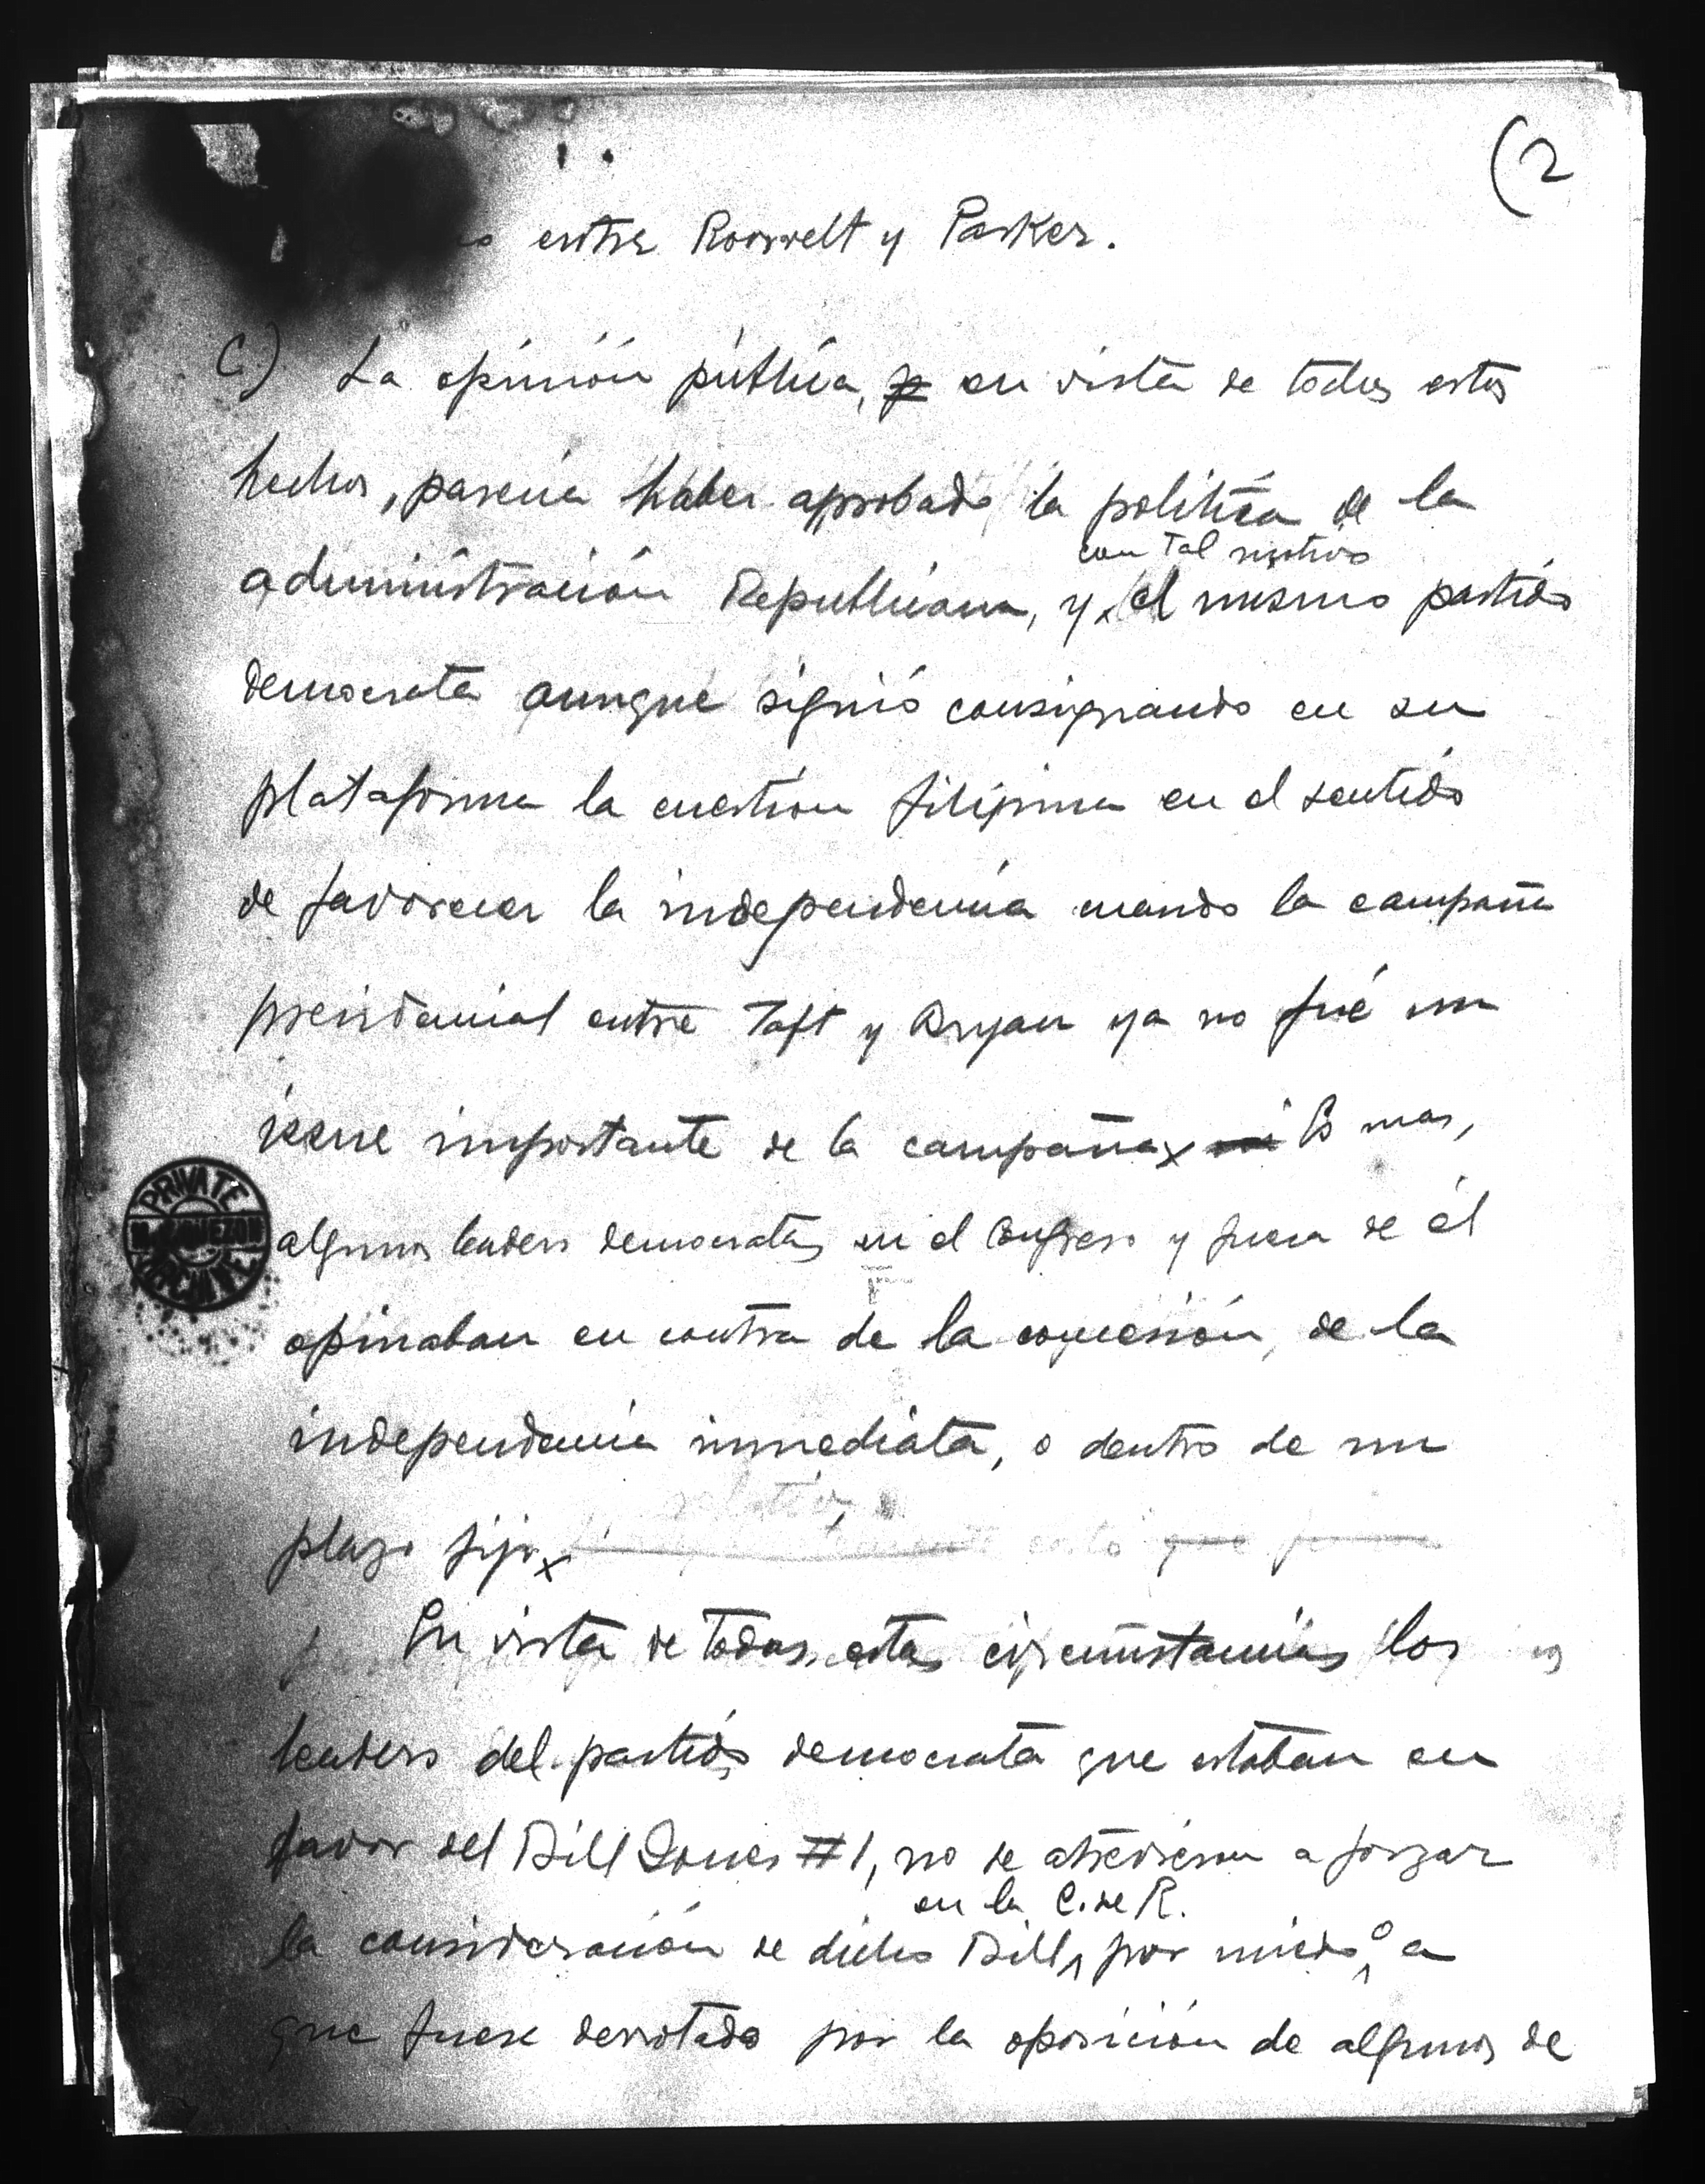 (2
entre Roosvelt y Parker.
C) La opinión pública, en vista de todos estos
hechos, parecia haber aprobado la politica de la
con tal motivo
administración Republicana, y x el mismo partido
democrata aunque siguió consignando en su
plataforma la cuestion filipina en el sentido
de favorecer la independencia cuando la campaña
presidencial entre Taft y Bryan ya no fué un
issue importante de la campaña x Es mas,
algunos leaders democratas en el Congreso y fuera de él
opinaban en contra de la concesión, de la
independencia inmediata, o dentro de un
plazo fijo x
En vista de todas estas circunstancias los
leaders del partido democrata que estaban en
favor del Bill Jones #1, no se atrevieron a forzar
en la C. de R.
la consideración de dicho Bill, por miedo a
que fuese derrotado por la oposición de algunos de
PRIVATE
M. L. QUEZON
ARCHIVE